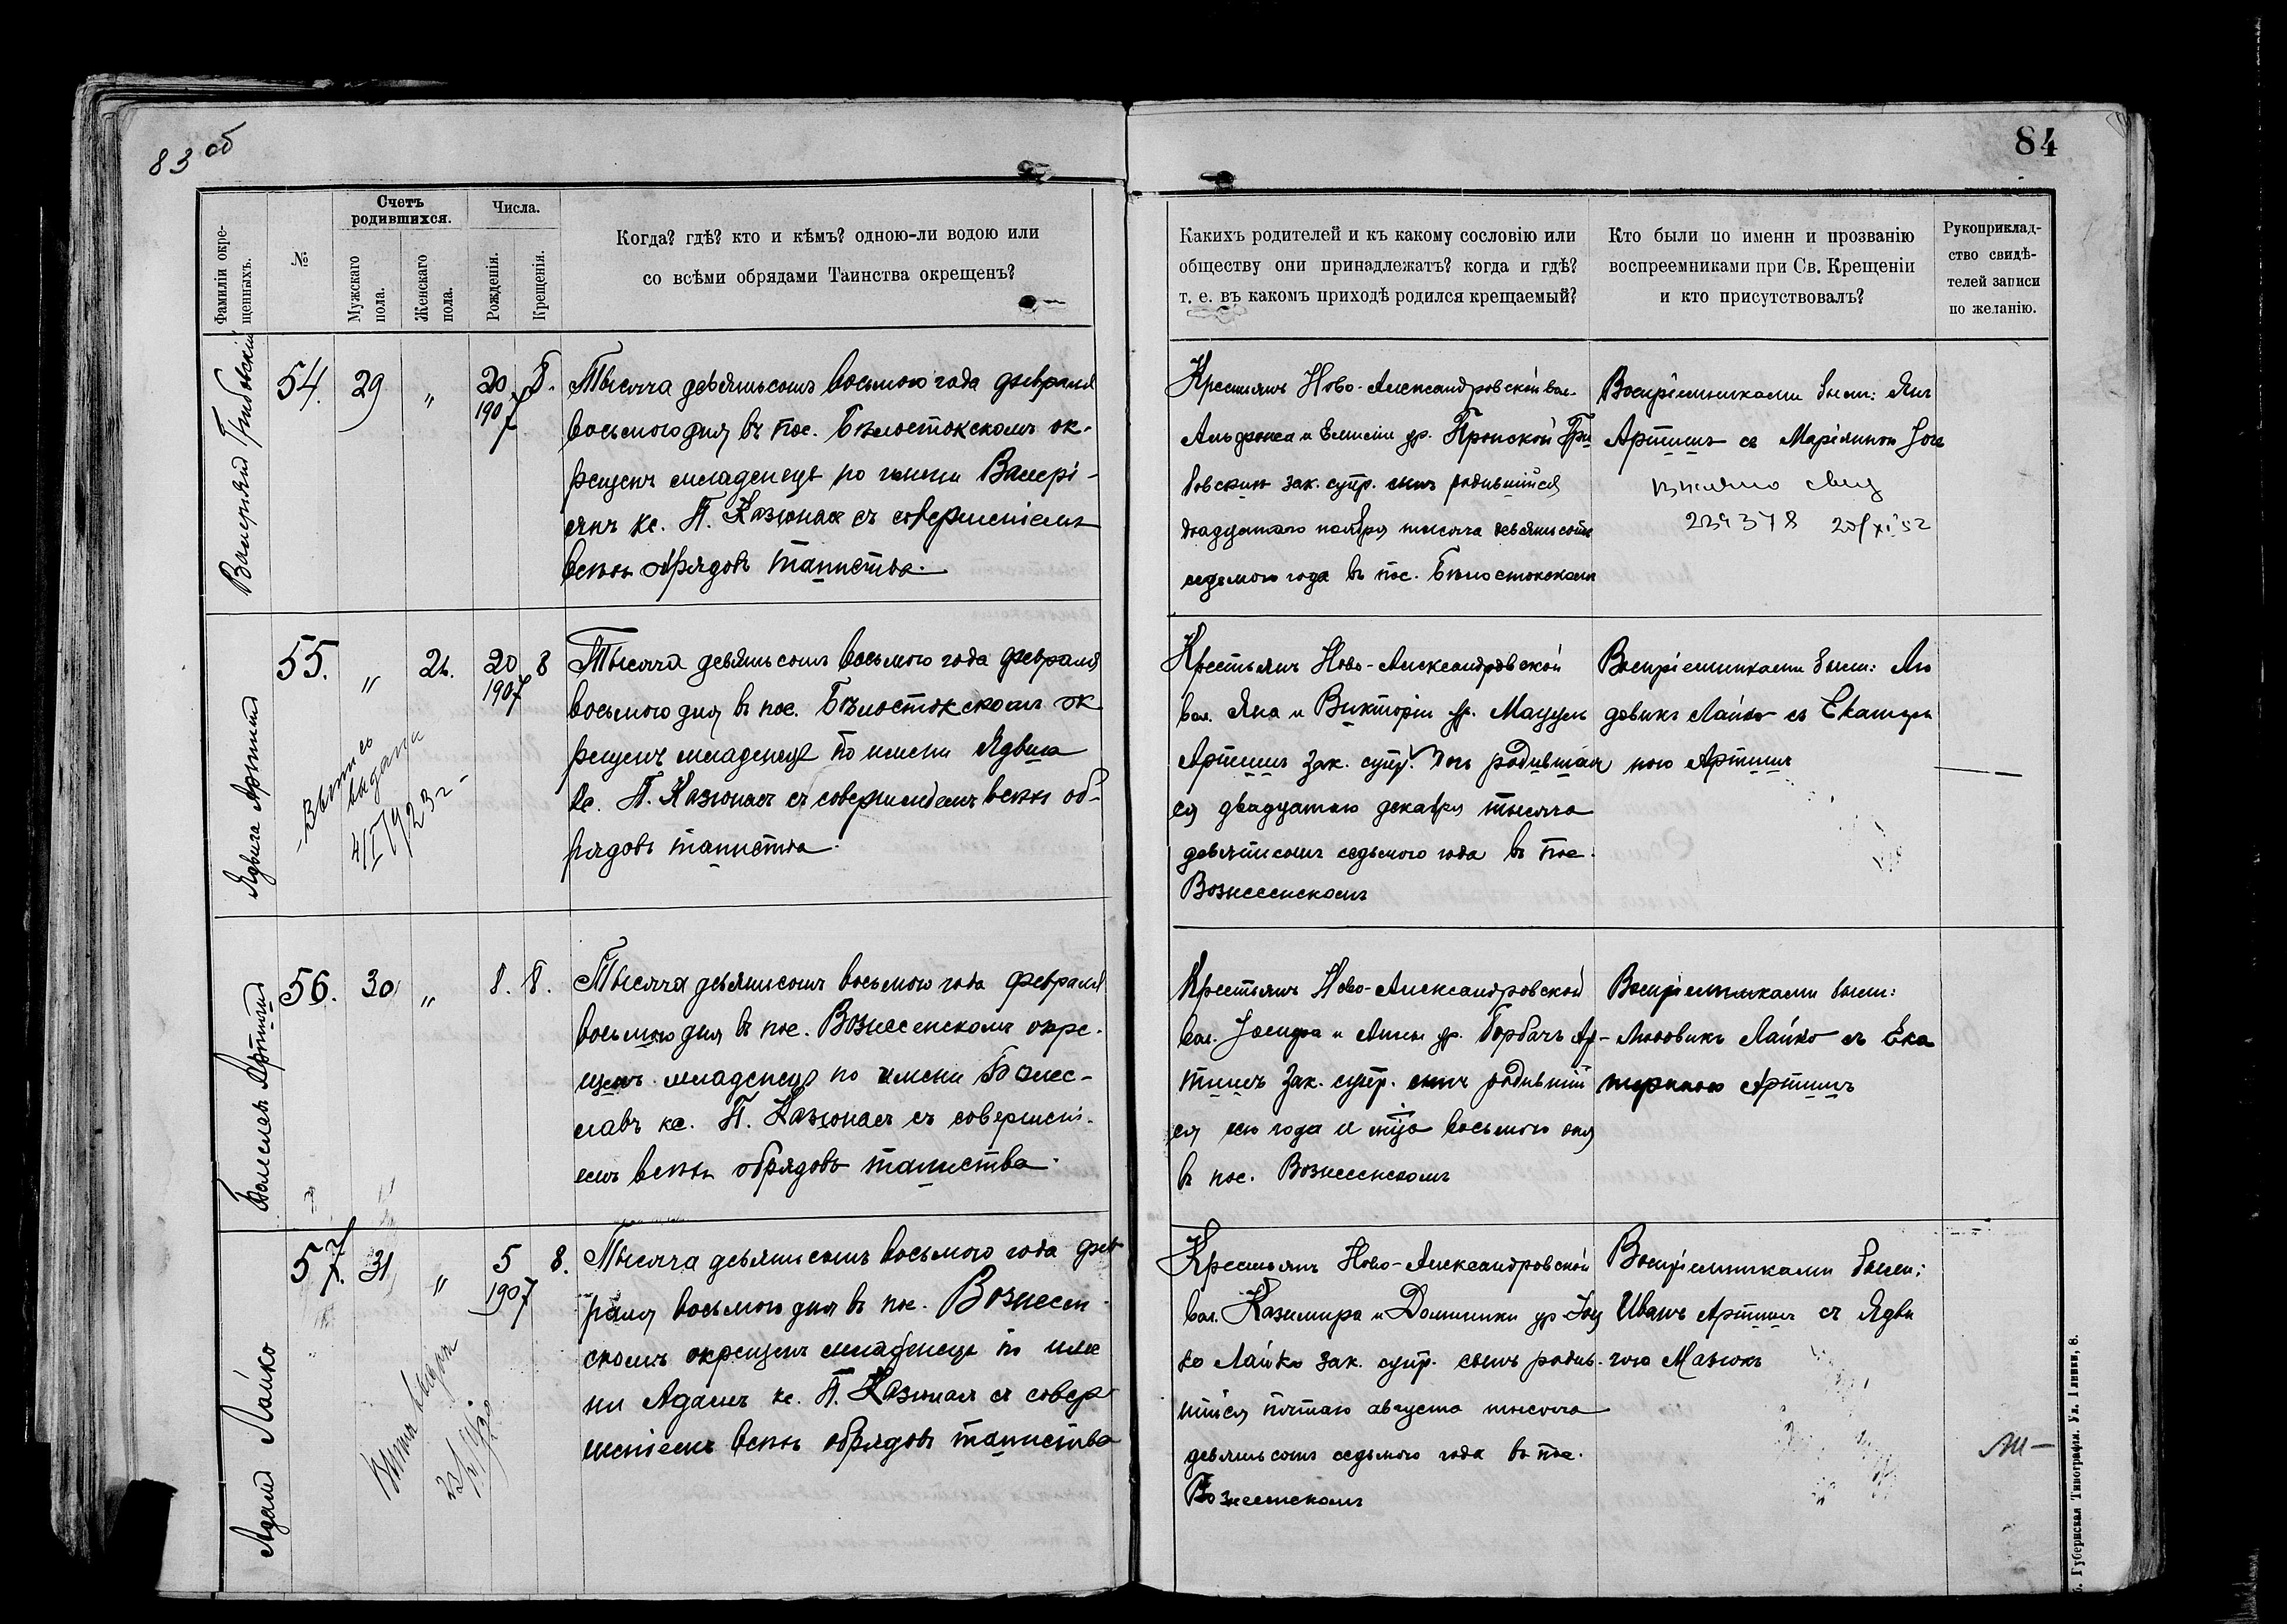 83 об
84
Фамиліи окре-
щенныхъ.
№
Счетъ
родившихся.
Мужскаго
пола.
Женскаго
пола.
Числа.
Рожденія.
Крещенія.
Когда? гдѣ? кто и кѣмъ? одною-ли водою или
со всѣми обрядами Таинства окрещенъ?
Какихъ родителей и къ какому сословію или
обществу они принадлежатъ? когда и гдѣ?
т. е. въ какомъ приходѣ родился крещаемый?
Кто были по имени и прозванію
воспреемниками при Св. Крещеніи
и кто присутствовалъ?
Рукоприклад-
ство свидѣ-
телей записи
по желанію.
Валеріянъ Грибовскій
54. 29 " 20 8.
1907
Тысяча девятьсотъ восьмого года февраля
восьмого дня въ пос. Бѣлостокскомъ ок-
рещенъ младенецъ по имени Валері-
янъ кс. П. Казюнасъ съ совершеніемъ
всѣхъ обрядовъ таинства.
Крестьянъ Ново-Александровской вол.
Альфонса и Емиліи ур. Пронской Гри
бовскихъ зак. супр. сынъ родившійся
двадцатаго ноября тысяча девятьсотъ
седьмого года въ пос. Бѣлостокскомъ
Воспріемниками были: Янъ
Артишъ съ Маріянною
239378 20/XI 52
Ядвига Артишъ
55. " 24. 20 8
1907
Выпись
выдана
4/I 1923 г.
Тысяча девятьсотъ восьмого года февраля
восьмого дня въ пос. Бѣлостокскомъ ок
рещенъ младенецъ по имени Ядвига
кс. П. Казюнасъ съ совершеніемъ всѣхъ об-
рядовъ таинства.
Крестьянъ Ново-Александровской
вол. Яна и Викторіи ур. Мацуль
Артишъ зак. супр. дочь родившая
ся двадцатаго декабря тысяча
девятьсотъ седьмого года въ пос.
Вознесенскомъ
Воспріемниками были: Лю
довикъ Лайко съ Екатери
ною Артишъ
Болеславъ Артишъ
56. 30 " 8. 8.
Тысяча девятьсотъ восьмого года февраля
восьмого дня въ пос. Вознесенскомъ окре-
щенъ младенецъ по имени Болес-
лавъ кс. П. Казюнасъ съ совершені-
емъ всѣхъ обрядовъ таинства.
Крестьянъ Ново-Александровской
вол. Іосифа и Анны ур. Горбачъ Ар-
тишъ зак. супр. сынъ родившій
ся сего года и м-ца восьмого дня
въ пос. Вознесенскомъ
Воспріемниками были:
Людовикъ Лайко съ Ека
териною Артишъ
Адамъ Лайко
57. 31 " 5 8.
1907
Тысяча девятьсотъ восьмого года фев
раля восьмого дня въ пос. Вознесен
скомъ окрещенъ младенецъ по име
ни Адамъ кс. П. Казюнасъ съ совер
шеніемъ всѣхъ обрядовъ таинства
Крестьянъ Ново-Александровской
вол. Казимира и Доминики ур.
ко Лайко зак. супр. сынъ родив-
шійся пятаго августа тысяча
девятьсотъ седьмого года въ пос.
Вознесенскомъ
Воспріемниками были:
Иванъ Артишъ съ Ядви
гою Мазюкъ
Губернская Типографія.